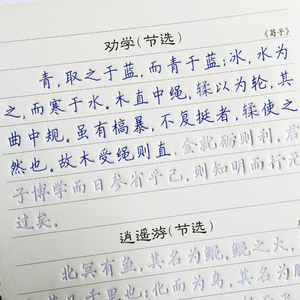 劝学(节选)
《荀子》
青,取之于蓝,而青于蓝;冰,水为
之,而寒于水。木直中绳,𫐓以为轮,其
曲中规。虽有槁暴,不复挺者,𫐓使之
然也。故木受绳则直,金就砺则利,君
子博学而日参省乎己,则知明而行无
过矣。
逍遥游(节选)
北冥有鱼,其名为鲲。鲲之大,
千里也;化而为鸟,其名为